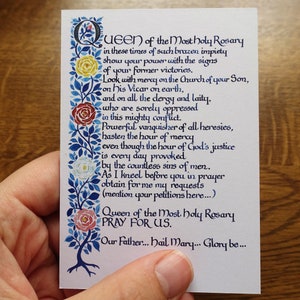 QUEEN of the Most Holy Rosary
in these times of such brazen impiety
show your power with the signs
of your former victories.
Look with mercy on the Church of your Son,
on His Vicar on earth,
and on all the clergy and laity,
who are sorely oppressed
in this mighty conflict.
Powerful vanquisher of all heresies,
hasten the hour of mercy
even though the hour of God's justice
is every day provoked
by the countless sins of men.
As I kneel before you in prayer
obtain for me my requests
(mention your petitions here...)
Queen of the Most Holy Rosary
PRAY FOR US.
Our Father... Hail Mary... Glory be...